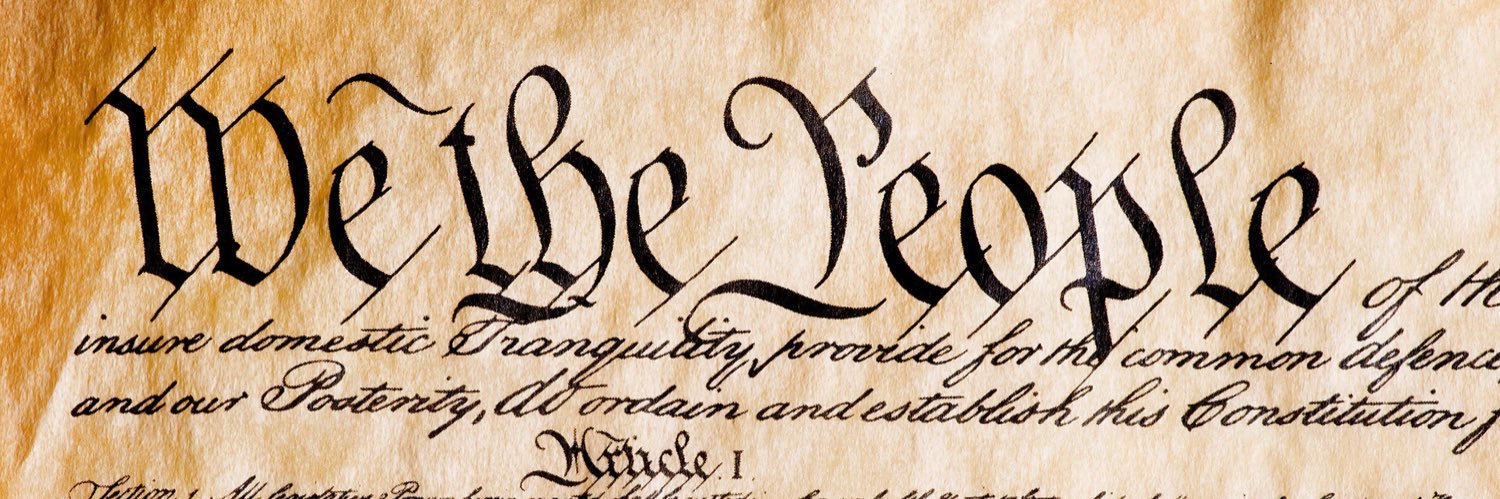 We the People of the
insure domestic Tranquility, provide for the common defence
and our Posterity, do ordain and establish this Constitution f
Article. I.
Section. 1. All